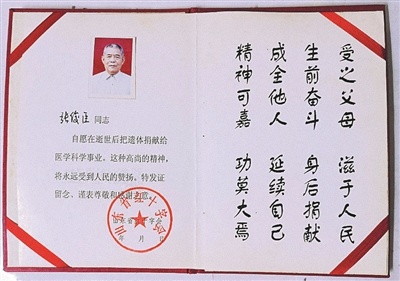 同志
自愿在逝世后把遗体捐献给
医学科学事业。这种高尚的精神,
将永远受到人民的赞扬。特发证
留念、谨表尊敬和感谢之意。
山东省红十字会
年 月 日
受之父母 滋于人民
生前奋斗 身后捐献
成全他人 延续自己
精神可嘉 功莫大焉